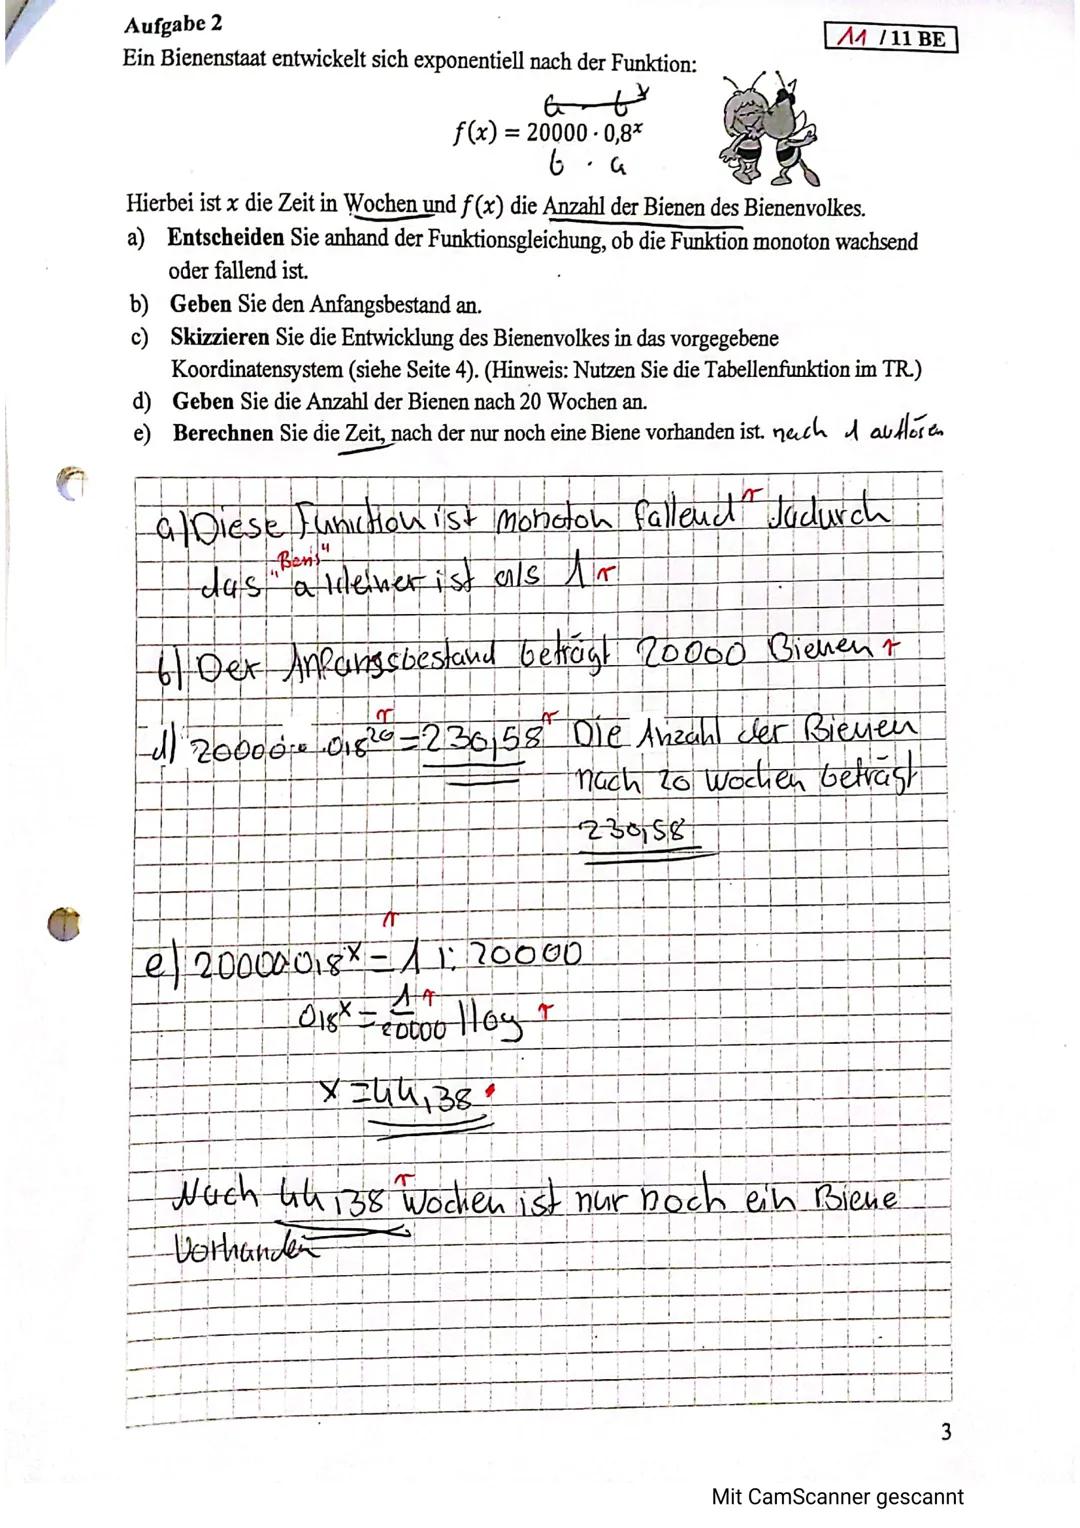 Aufgabe 2
11 / 11 BE
Ein Bienenstaat entwickelt sich exponentiell nach der Funktion:
f(x) = 20000 · 0,8ˣ
b · a
Hierbei ist x die Zeit in Wochen und f(x) die Anzahl der Bienen des Bienenvolkes.
a) Entscheiden Sie anhand der Funktionsgleichung, ob die Funktion monoton wachsend
oder fallend ist.
b) Geben Sie den Anfangsbestand an.
c) Skizzieren Sie die Entwicklung des Bienenvolkes in das vorgegebene
Koordinatensystem (siehe Seite 4). (Hinweis: Nutzen Sie die Tabellenfunktion im TR.)
d) Geben Sie die Anzahl der Bienen nach 20 Wochen an.
e) Berechnen Sie die Zeit, nach der nur noch eine Biene vorhanden ist. nach 1 auflösen
a) Diese Funktion ist monoton fallend r dadurch
"Basis"
das a kleiner ist als 1 r
b) Der Anfangsbestand beträgt 20000 Bienen r
d) 20000 · 0,8²⁰ = 230,58 r Die Anzahl der Bienen
nach 20 Wochen beträgt
230,58
e) 20000·0,8ˣ = 1 |: 20000
0,8ˣ = 1/20000 r | log r
x = 44,38
Nach 44,38 r Wochen ist nur noch ein Biene
Vorhanden
3
Mit CamScanner gescannt